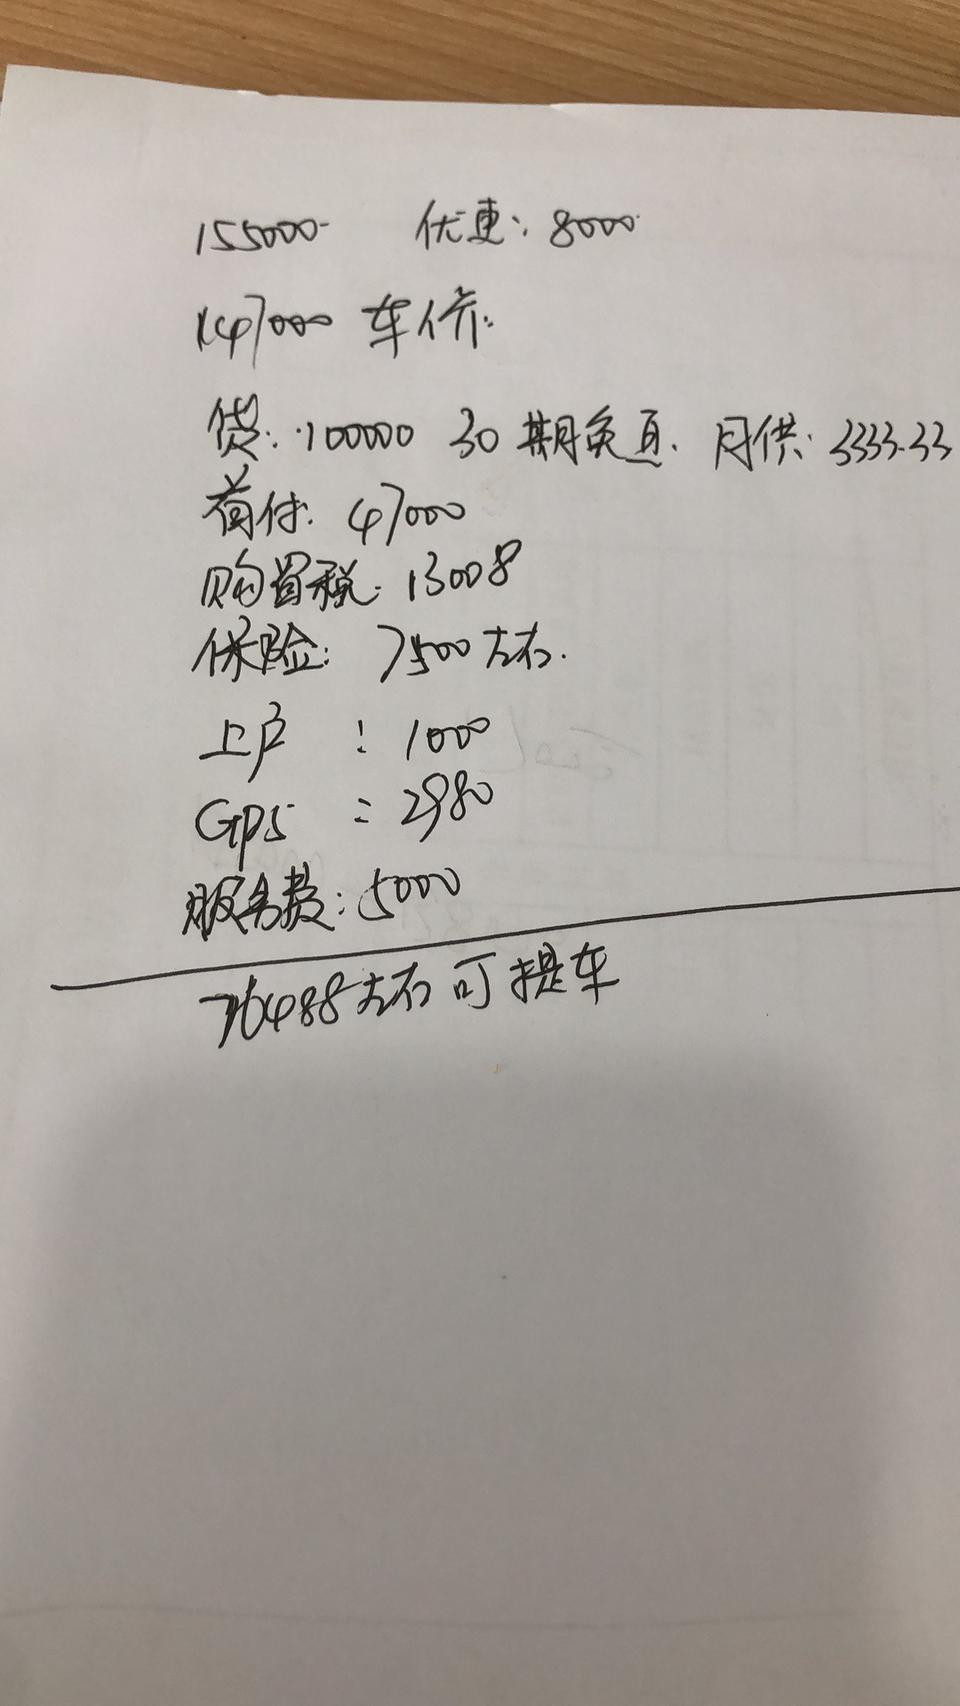 155000 优惠: 8000
147000 车价:
贷: 100000 30期免息. 月供: 3333.33
首付: 47000
购置税: 13008
保险: 7500左右.
上户 : 1000
GPS : 2980
服务费: 5000
76488左右可提车